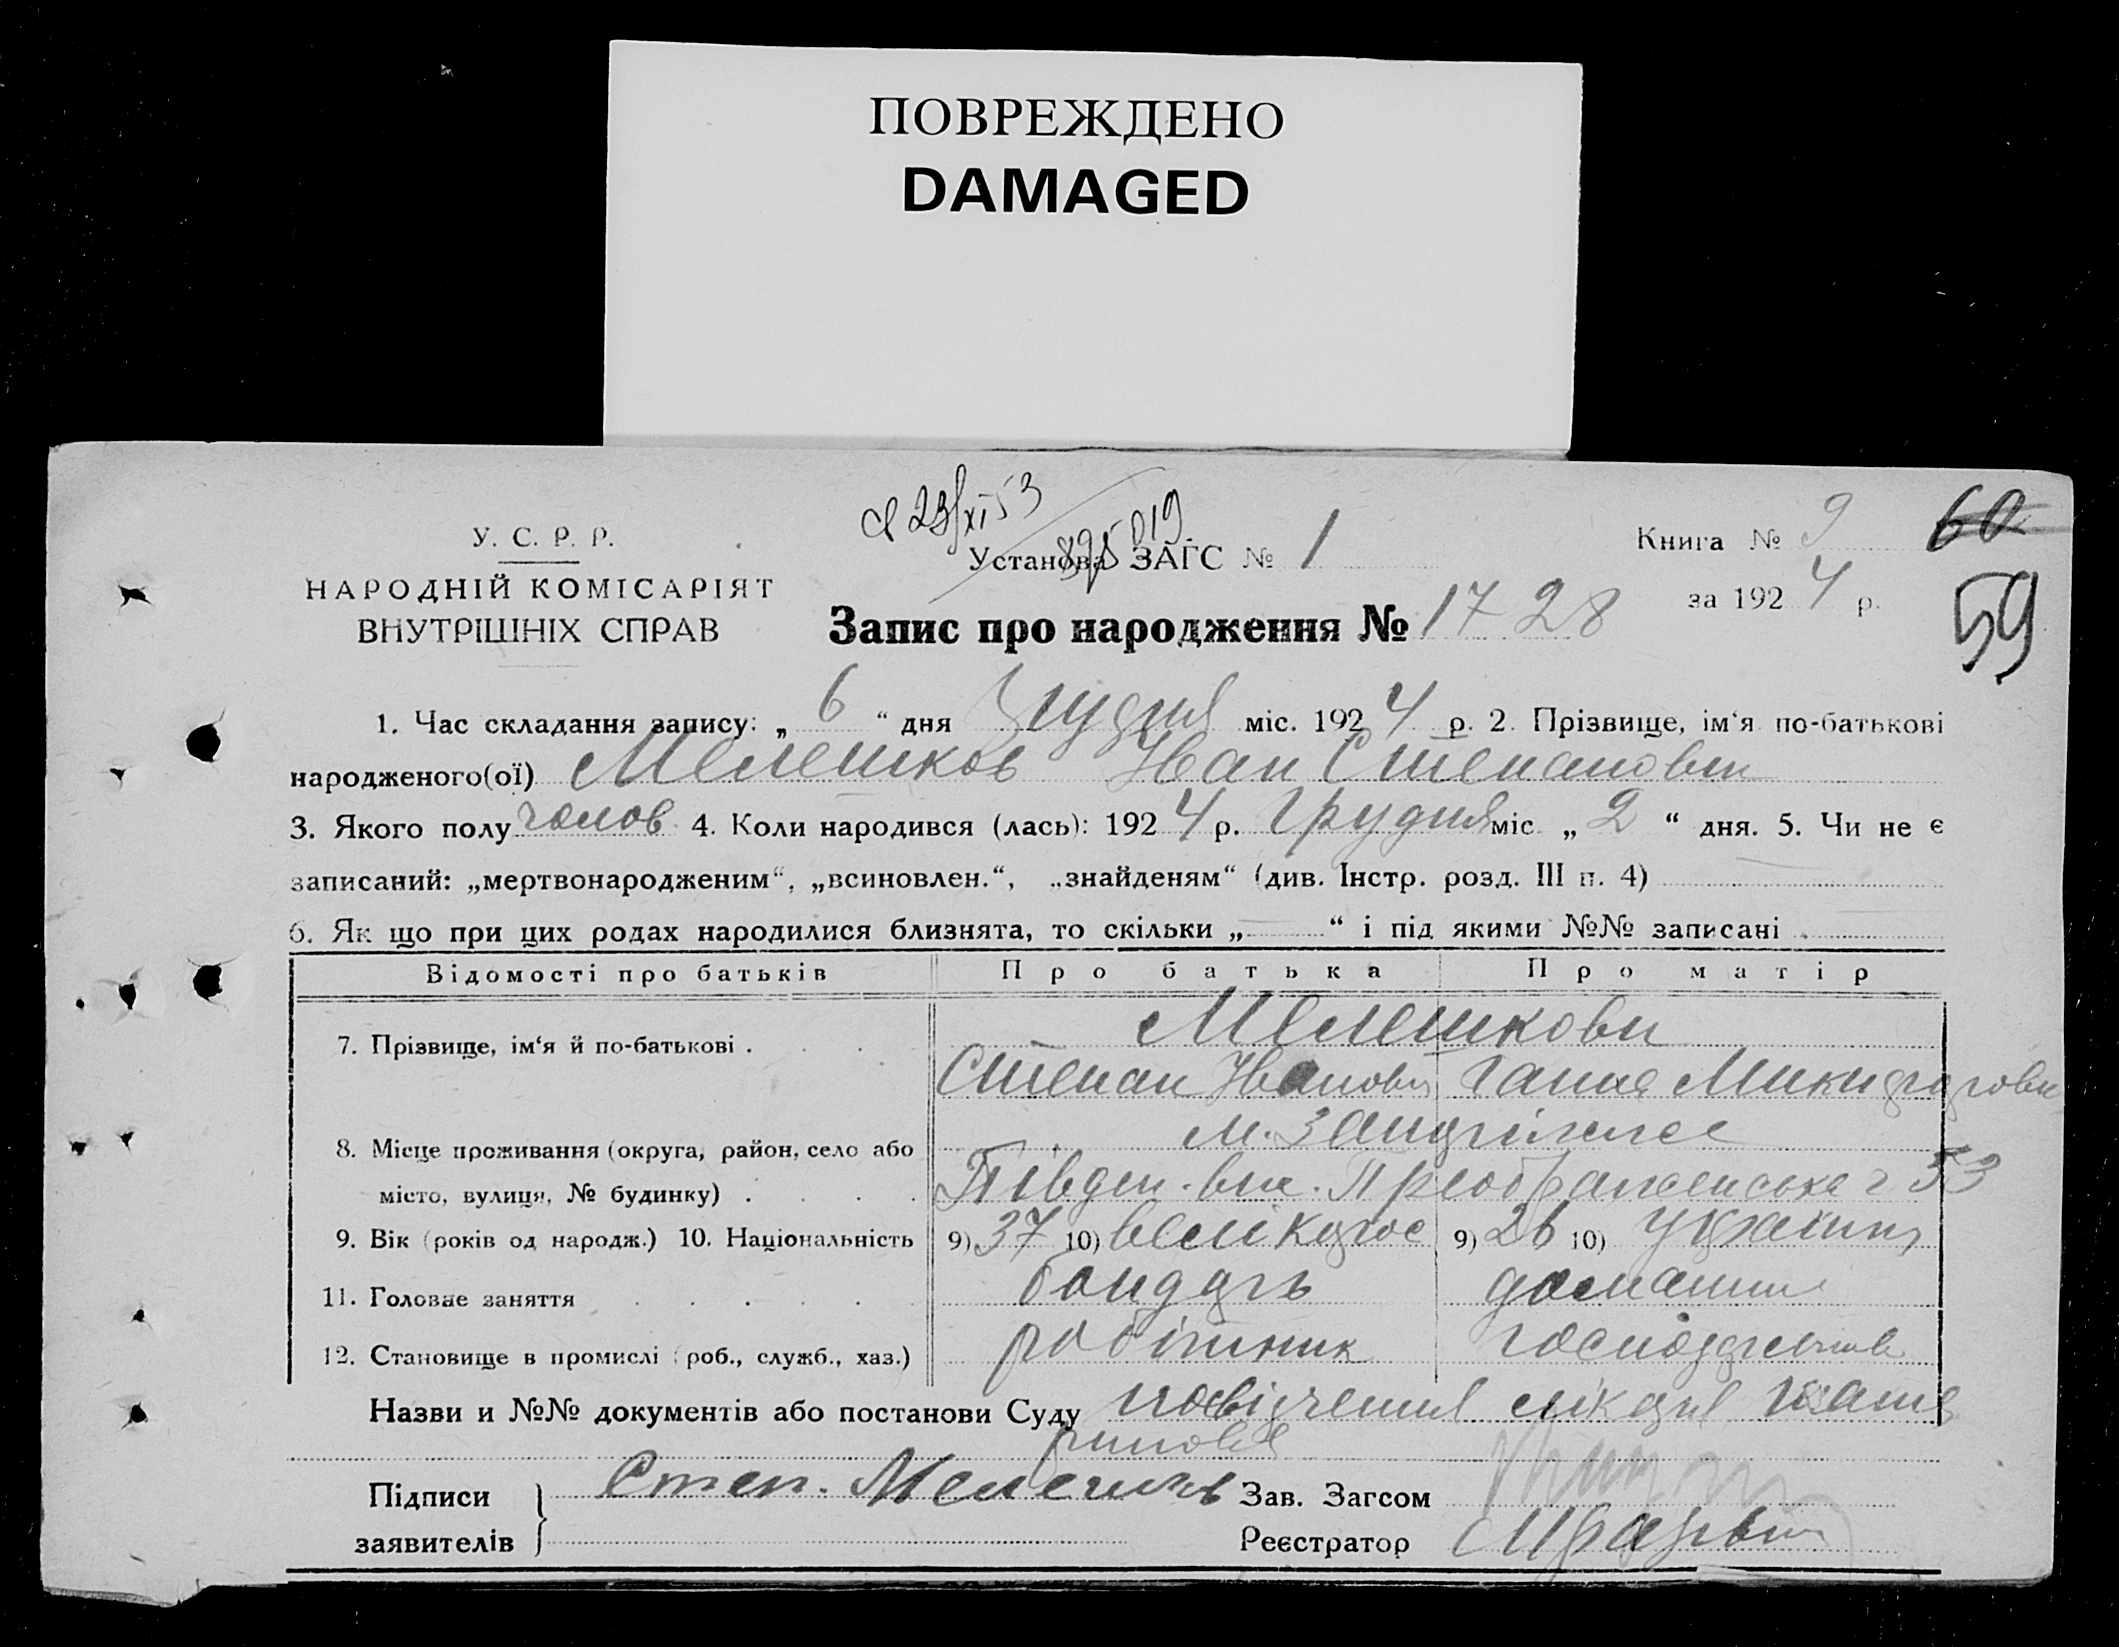 ПОВРЕЖДЕНО
DAMAGED
23/XI 53
У. С. Р. Р.
НАРОДНІЙ КОМІСАРІЯТ
ВНУТРІШНІХ СПРАВ
Установа ЗАГС № 1
Запис про народження № 1728
Книга № 9
за 1924 р.
60
59
1. Час складання запису: „ 6 “ дня Грудня міс. 1924 р. 2. Прізвище, ім‘я по-батькові
народженого(ої) Мелешков Иван Степанович
3. Якого полу чолов 4. Коли народився (лась): 1924 р. Грудня міс „ 2 “ дня. 5. Чи не є
записаний: „мертвонародженим“, „всиновлен.“, „знайденям“ (див. Інстр. розд. III п. 4)
6. Як що при цих родах народилися близнята, то скільки „ “ і під якими №№ записані
Відомості про батьків Про батька Про матір
Мелешкови
7. Прізвище, ім‘я й по-батькові .
Степан Иванович Ганна
8. Місце проживання (округа, район, село або
місто, вулиця, № будинку) . Півден. вул. Преображенська 53
9. Вік (років од народж.) 10. Національність 9) 37 10) велікорос 9) 26 10) україн
11. Головне заняття бондарь домашнє
12. Становище в промислі (роб., служб., хаз.) робітник господарство
Назви и №№ документів або постанови Суду посвідчення лікаря
Підписи
заявителів
Степ. Мелешков
Зав. Загсом
Реєстратор